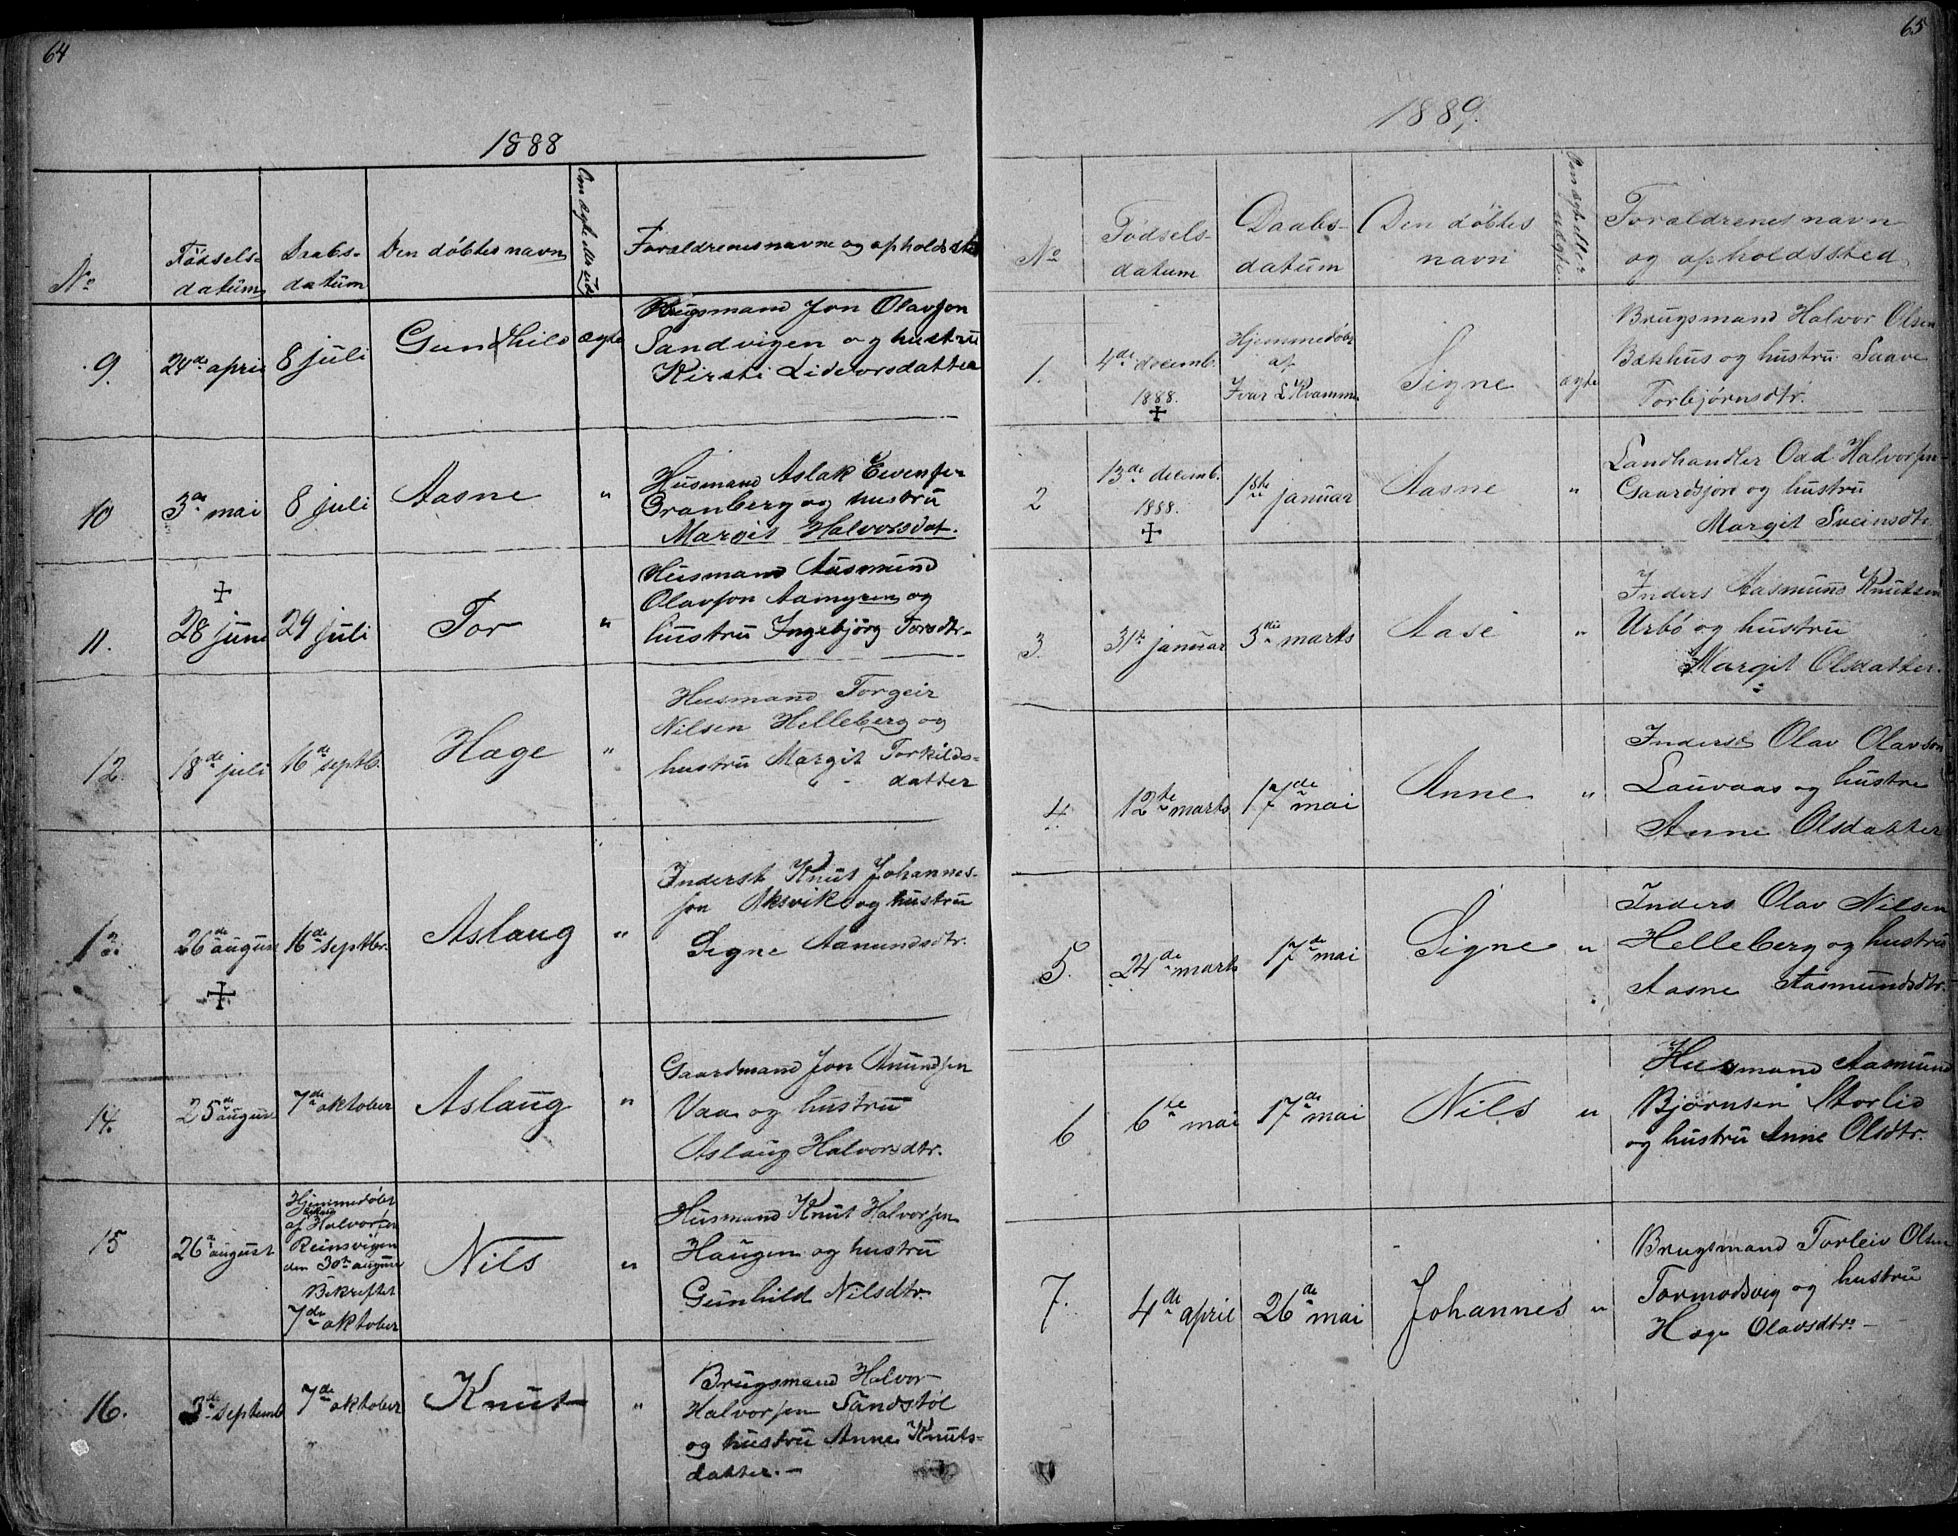 64
1888
No
Fødsels-
datum
Daabs-
datum
Den døbtes navn
Om ægte ell.
Forældrenes navne og opholdssted
9.
24de april
8 juli
Gundhild
ægte
Brugsmand Jon Olavson
Sandvigen og hustru
Kirsti Lidvorsdatter
10
3de mai
8 juli
Aasne
"
Husmand Aslak Evensen
Granberg og hustru
Margit Halvorsdat.
11.
28 juni
29 juli
Tor
"
Husmand Aasmund
Olavson Aamyren og
hustru Ingebjørg Torsdtr.
12.
18de juli
16de septb.
Hæge
"
Husmand Torgeir
Nilsen Helleberg og
hustru Margit Torkilds-
datter
13.
26de august
16de septbr.
Aslaug
"
Inderst Knut Johannes-
son Aksvik og hustru
Signe Aamundsdtr.
14.
25de august
7de oktober
Aslaug
"
Gaardmand Jon Anundsen
Vaa og hustru
Aslaug Halvorsdtr.
15
26de august
Hjemmedøbt
af Halvorsen
Reinsvigen
den 30te august
Bekræftet
7de oktober
Nils
"
Husmand Knut Halvorsen
Haugen og hustru
Gunhild Nilsdtr.
16.
3de septemb
7de oktober
Knut
"
Brugsmand Halvor
Halvorsen Sandstøl
og hustru Anne Knuts-
datter.-
65
1889.
No
Fødsels-
datum
Daabs-
datum
Den døbtes
navn
Om ægte eller
uægte.
Forældrenes navn
og opholdssted
1.
4de decemb.
1888.
Hjemmedøbt
af
Ivar L Kvamme
Signe
ægte
Brugsmand Halvor Olsen
Bækhus og hustru
Torbjørnsdtr.
2
13de decemb.
1888.
1ste januar
Aasne
"
Landhandler Odd Halvorsen
Gaardsjord og hustru
Margit Sveinsdtr.
3.
31te januar
3die marts
Aase
"
Inders Aasmund Knutsen
Urbø og hustru
Margit Olsdatter.
4.
12te marts
17de mai
Anne
"
Inderst Olav Olavson
Lauvaas og hustru
Anne Olsdatter
5.
24de marts
17de mai
Signe
"
Inders Olav Nilsen
Helleberg og hustru
Aasne Aasmundsdtr.
6
6te mai
17de mai
Nils
"
Husmand Aasmund
Bjørnsen Storlid
og hustru Anne Olsdtr.
7.
4de april
26de mai
Johannes
"
Brugsmand Torleiv Olsen
Tormodsvig og hustru
Hæge Olavsdtr.-